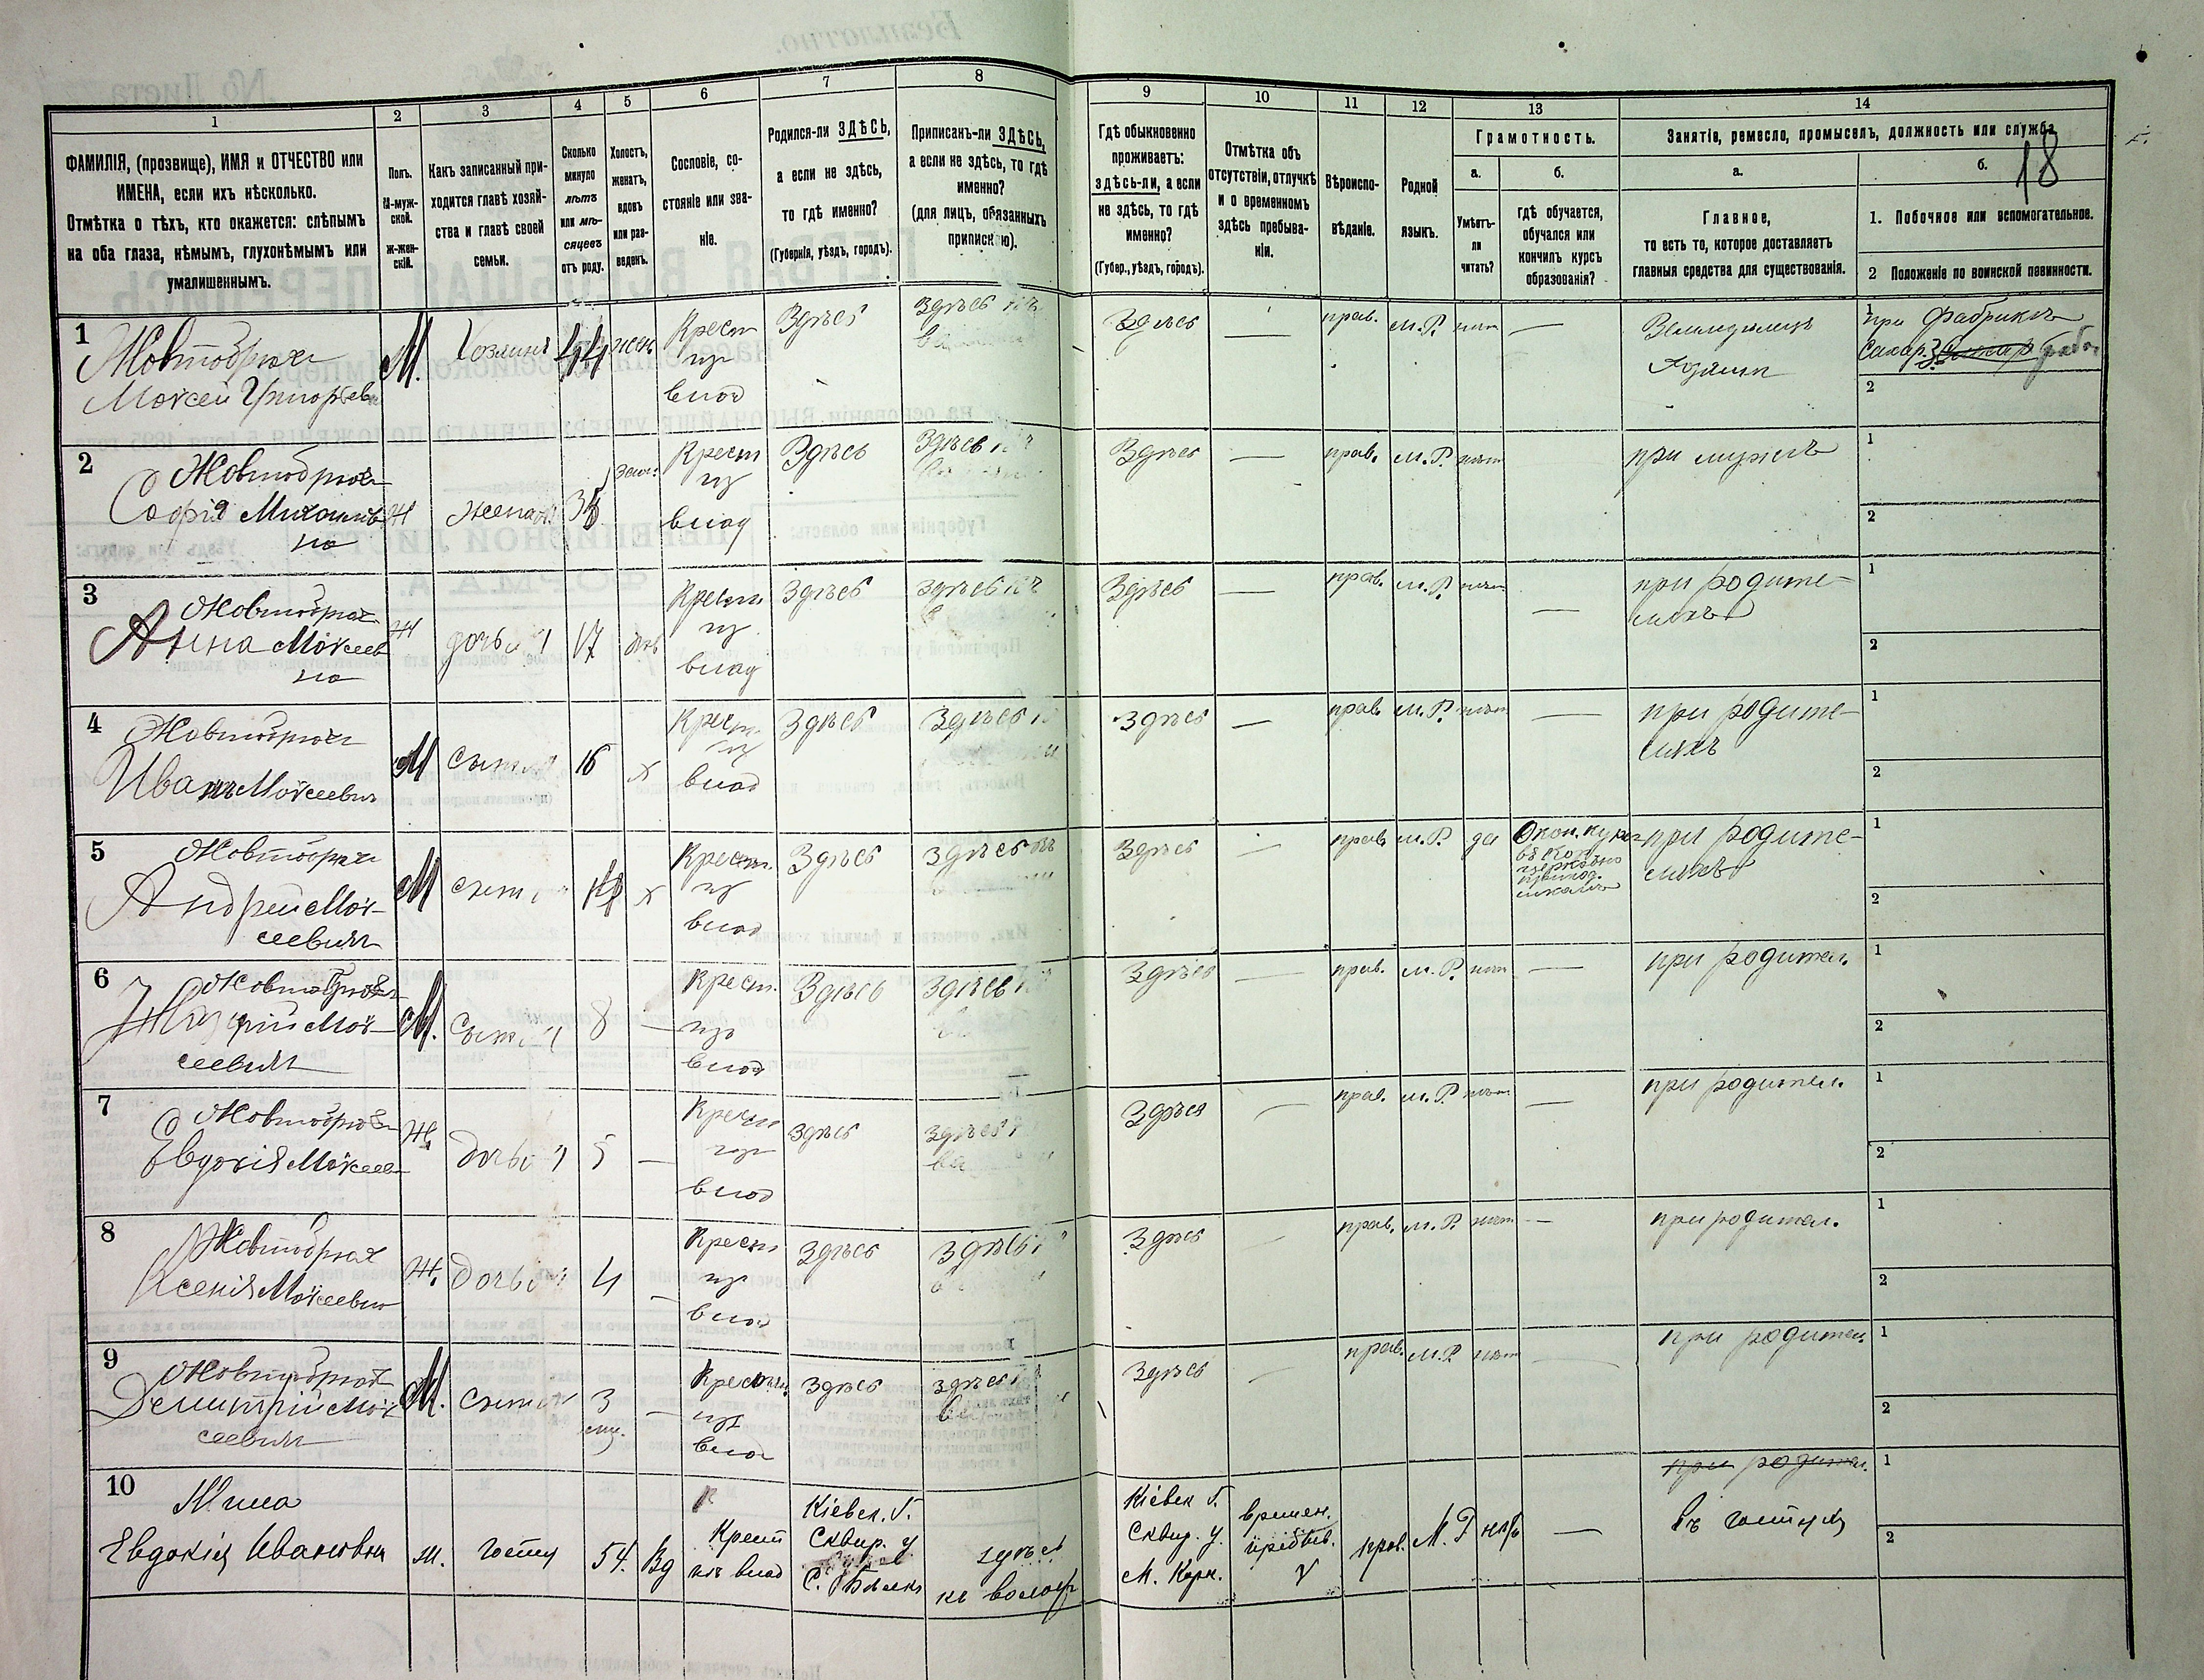 18
1 2 3 4 5 6 7 8 9 10 11 12 13 14
ФАМИЛІЯ, (прозвище), ИМЯ и ОТЧЕСТВО или
ИМЕНА, если ихъ нѣсколько.
Отмѣтка о тѣхъ, кто окажется: слѣпымъ
на оба глаза, нѣмымъ, глухонѣмымъ или
умалишеннымъ.
Полъ.
М-муж-
ской.
Ж-жен-
скій.
Какъ записанный при-
ходится главѣ хозяй-
ства и главѣ своей
семьи.
Сколько
минуло
лѣтъ
или мѣ-
сяцевъ
отъ роду.
Холостъ,
женатъ,
вдовъ
или раз-
веденъ.
Сословіе, со-
стояніе или зва-
ніе.
Родился-ли ЗДѢСЬ,
а если не здѣсь,
то гдѣ именно?
(Губернія, уѣздъ, городъ).
Приписанъ-ли ЗДѢСЬ,
а если не здѣсь, то гдѣ
именно?
(для лицъ, обязанныхъ
припискою).
Гдѣ обыкновенно
проживаетъ:
здѣсь-ли, а если
не здѣсь, то гдѣ
именно?
(Губер., уѣздъ, городъ).
Отмѣтка объ
отсутствіи, отлучкѣ
и о временномъ
здѣсь пребыва-
ніи.
Вѣроиспо-
вѣданіе.
Родной
языкъ.
Грамотность.
а.
Умѣетъ-
ли
читать?
б.
гдѣ обучается,
обучался или
кончилъ курсъ
образованія?
Занятіе, ремесло, промыселъ, должность или служба
а.
Главное,
то есть то, которое доставляетъ
главныя средства для существованія.
б.
1. Побочное или вспомогательное.
2 Положеніе по воинской повинности.
1
Жовтобрюхъ
Моѵсей Григорьев
М. Хозяинъ 44 жен.
Крест
из
влад
Здѣсь Здѣсь
Здѣсь — прав. М.Р. нѣт —
Земледѣлецъ
Хозяин
1 при фабрикѣ
Сахар.
2
2
Жовтобрюх
Софія Михайлов
на
Ж жена 35 Зам.
Крест
из
влад
Здѣсь Здѣсь
Здѣсь — прав. М.Р. нѣт
при мужѣ
1
2
3
Жовтобрюх
Анна Моѵсеев
на
Ж дочь 17 дѣв
Крест.
из
влад
Здѣсь Здѣсь
Здѣсь — прав. М.Р. нѣт —
при родите-
ляхъ
1
2
4
Жовтобрюхъ
Иванъ Моѵсеевич
М сынъ 16 х
Крест.
из
влад
Здѣсь Здѣсь
Здѣсь — прав. М.Р. нѣт —
при родите-
ляхъ
1
2
5
Жовтобрюх
Андрей Моѵ-
сеевич
М сынъ х
Крест.
из
влад
Здѣсь Здѣсь
Здѣсь — прав. М.Р. да
Окон. курс
при родите-
ляхъ
1
2
6
Жовтобрюх
Моѵ-
сеевич
М. сынъ 8 —
Крест.
изъ
влад
Здѣсь Здѣсь
Здѣсь — прав. М.Р. нѣт —
при родител.
1
2
7
Жовтобрюх
Евдокія Моѵсеев
Ж дочь 5 —
Крест
из
влад
здѣсь Здѣсь
Здѣсь — прав. М.Р. нѣт —
при родител.
1
2
8
Жовтобрюх
Ксенія Моѵсеевна
Ж. дочь 4 —
Крест
из
влад
здѣсь здѣсь
Здѣсь — прав. М.Р. нѣт —
при родител.
1
2
9
Жовтобрюх
Демитрій Моѵ
сеевич
М. сынъ 3 —
Крестьян.
из
влад
здѣсь здѣсь
Здѣсь — прав. М.Р. нѣт —
при родител
1
2
10
Евдокія Ивановна
ж. 54. Вд
Крест
изъ влад
Кіевск. Г.
Сквир. у
С.
здѣсь
къ волост
Кіевск Г.
Сквир. у
М. Корн.
времен.
прав. М. Р нѣтъ —
при родител.
въ
1
2